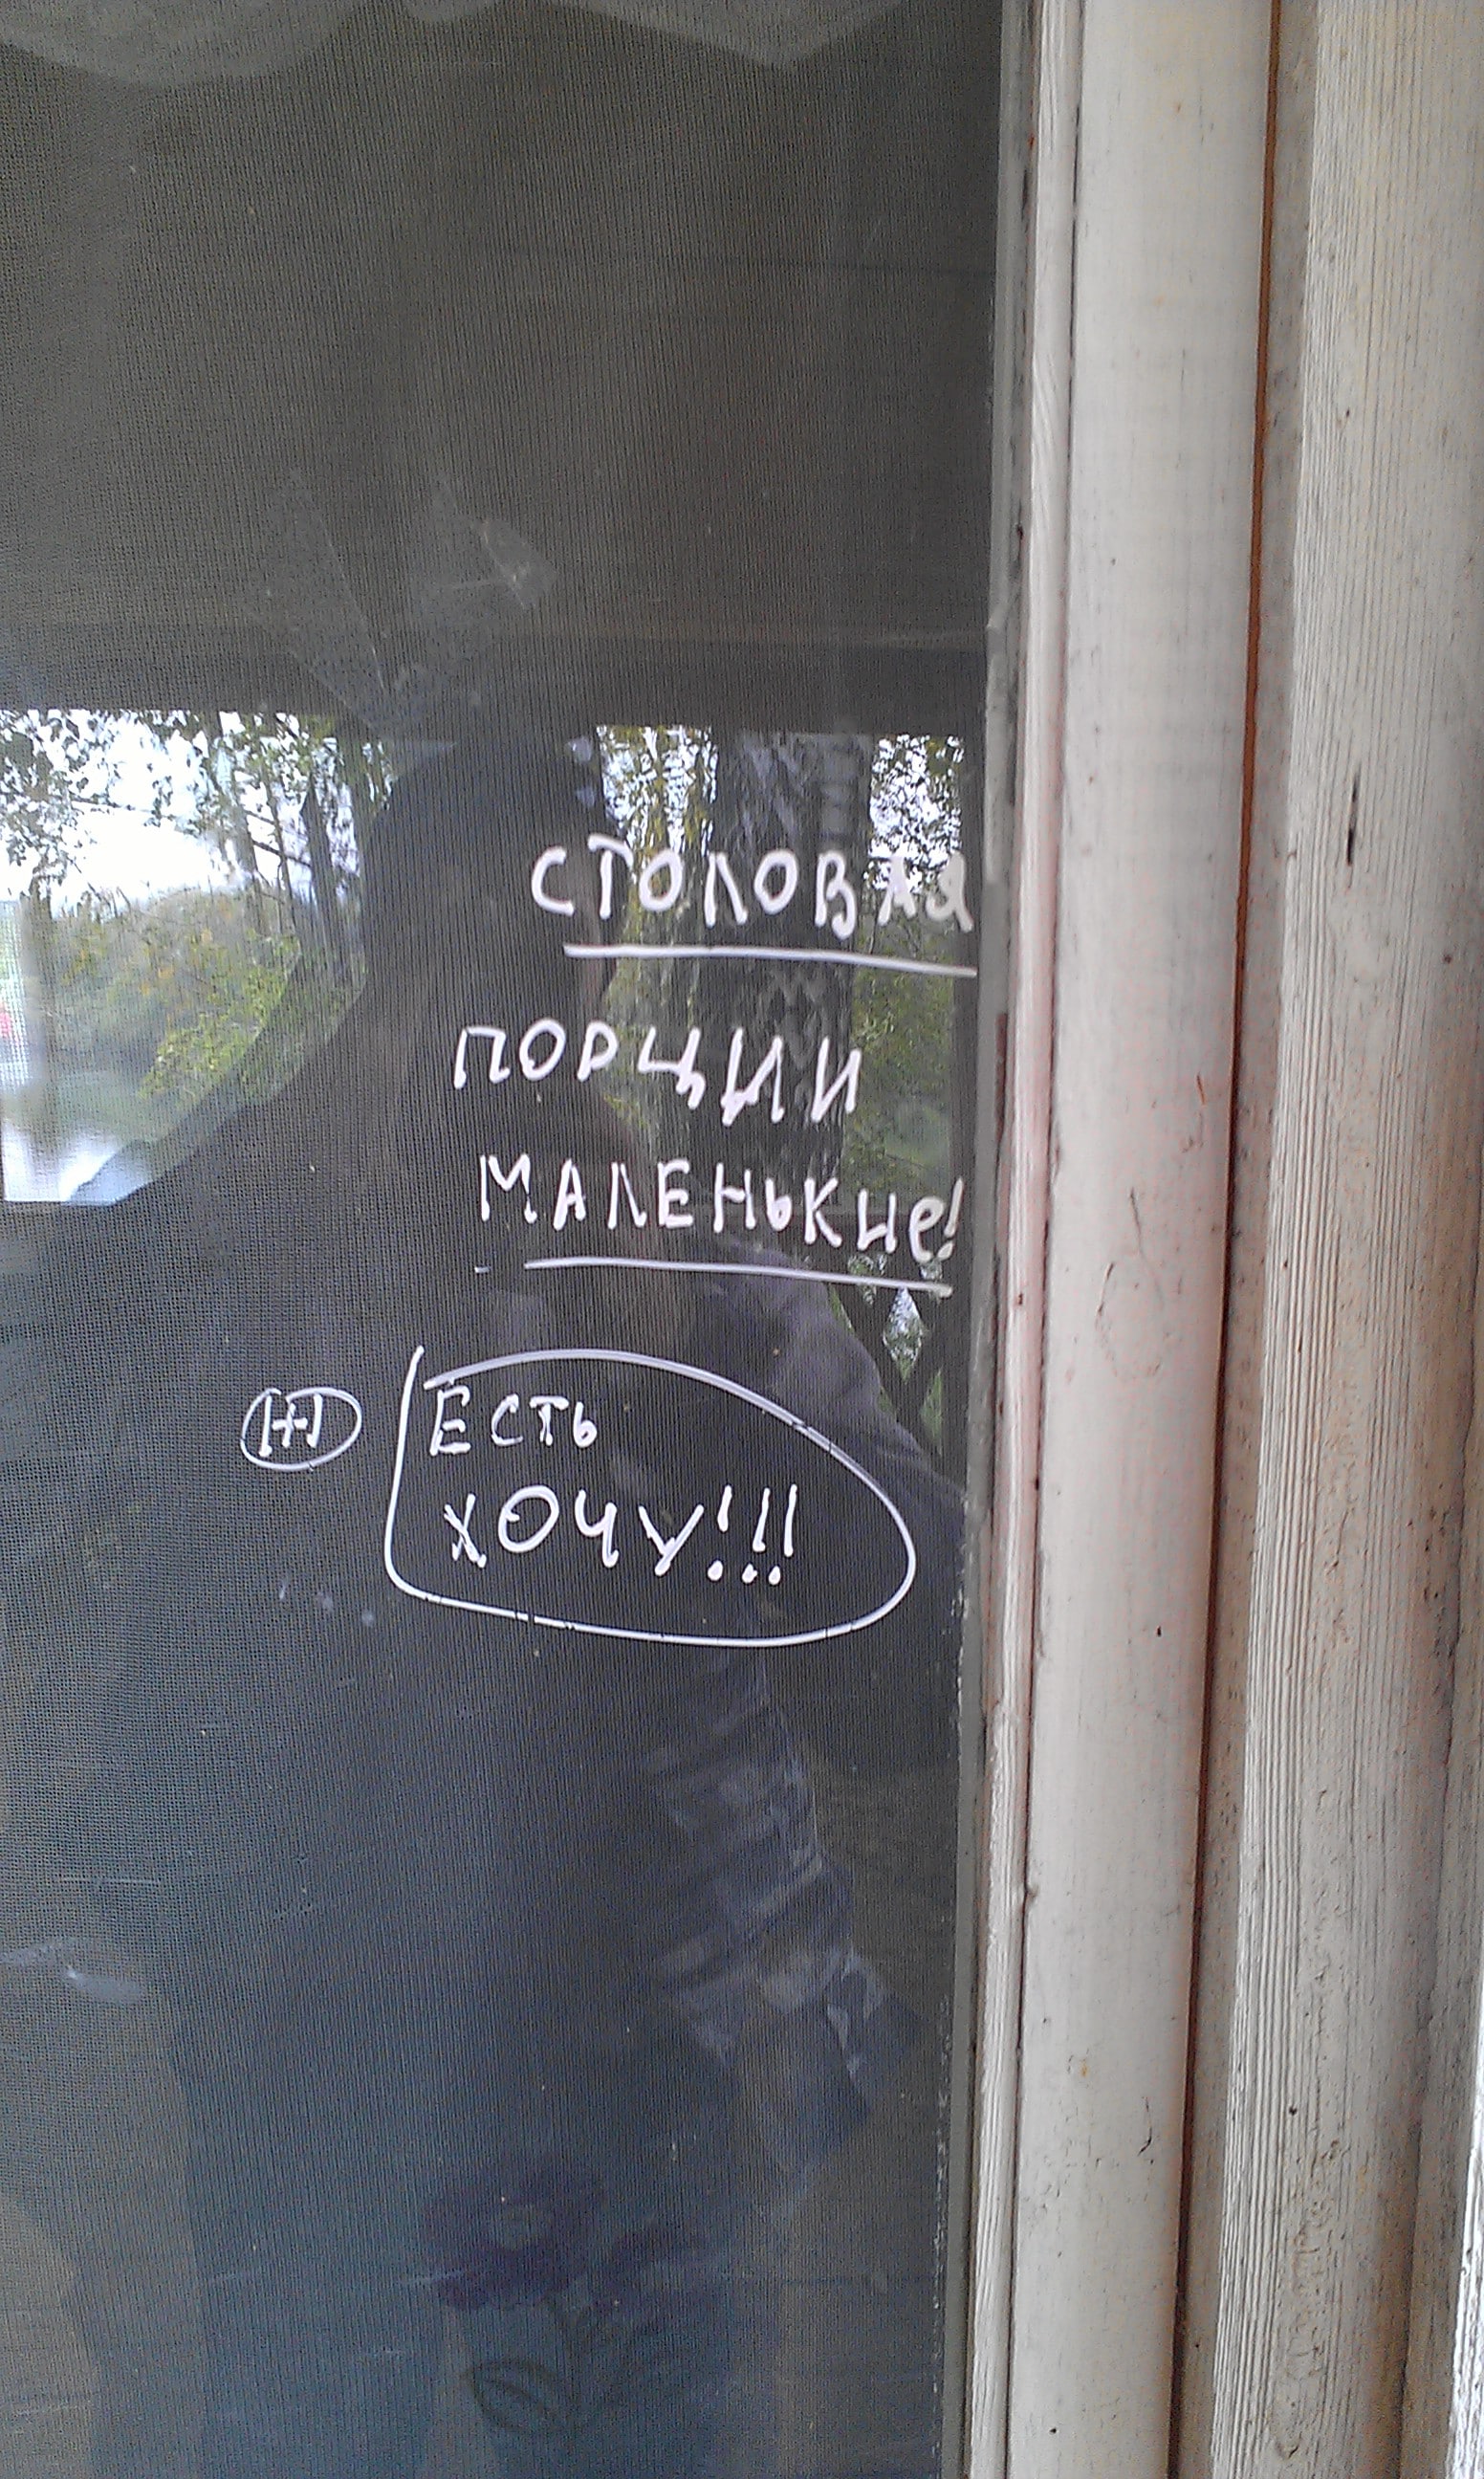 СТОЛОВАЯ
ПОРЦИИ
МАЛЕНЬКИе!
ЕСТЬ
ХОЧУ!!!